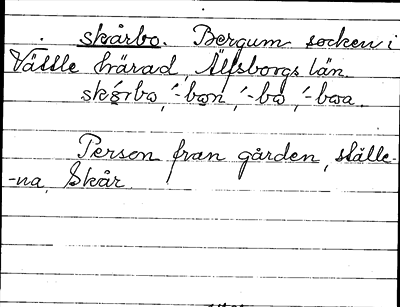 skårbo. Bergum socken i
Vättle härad, Älfsborgs län.
Person från gården, ställe-
-na Skår